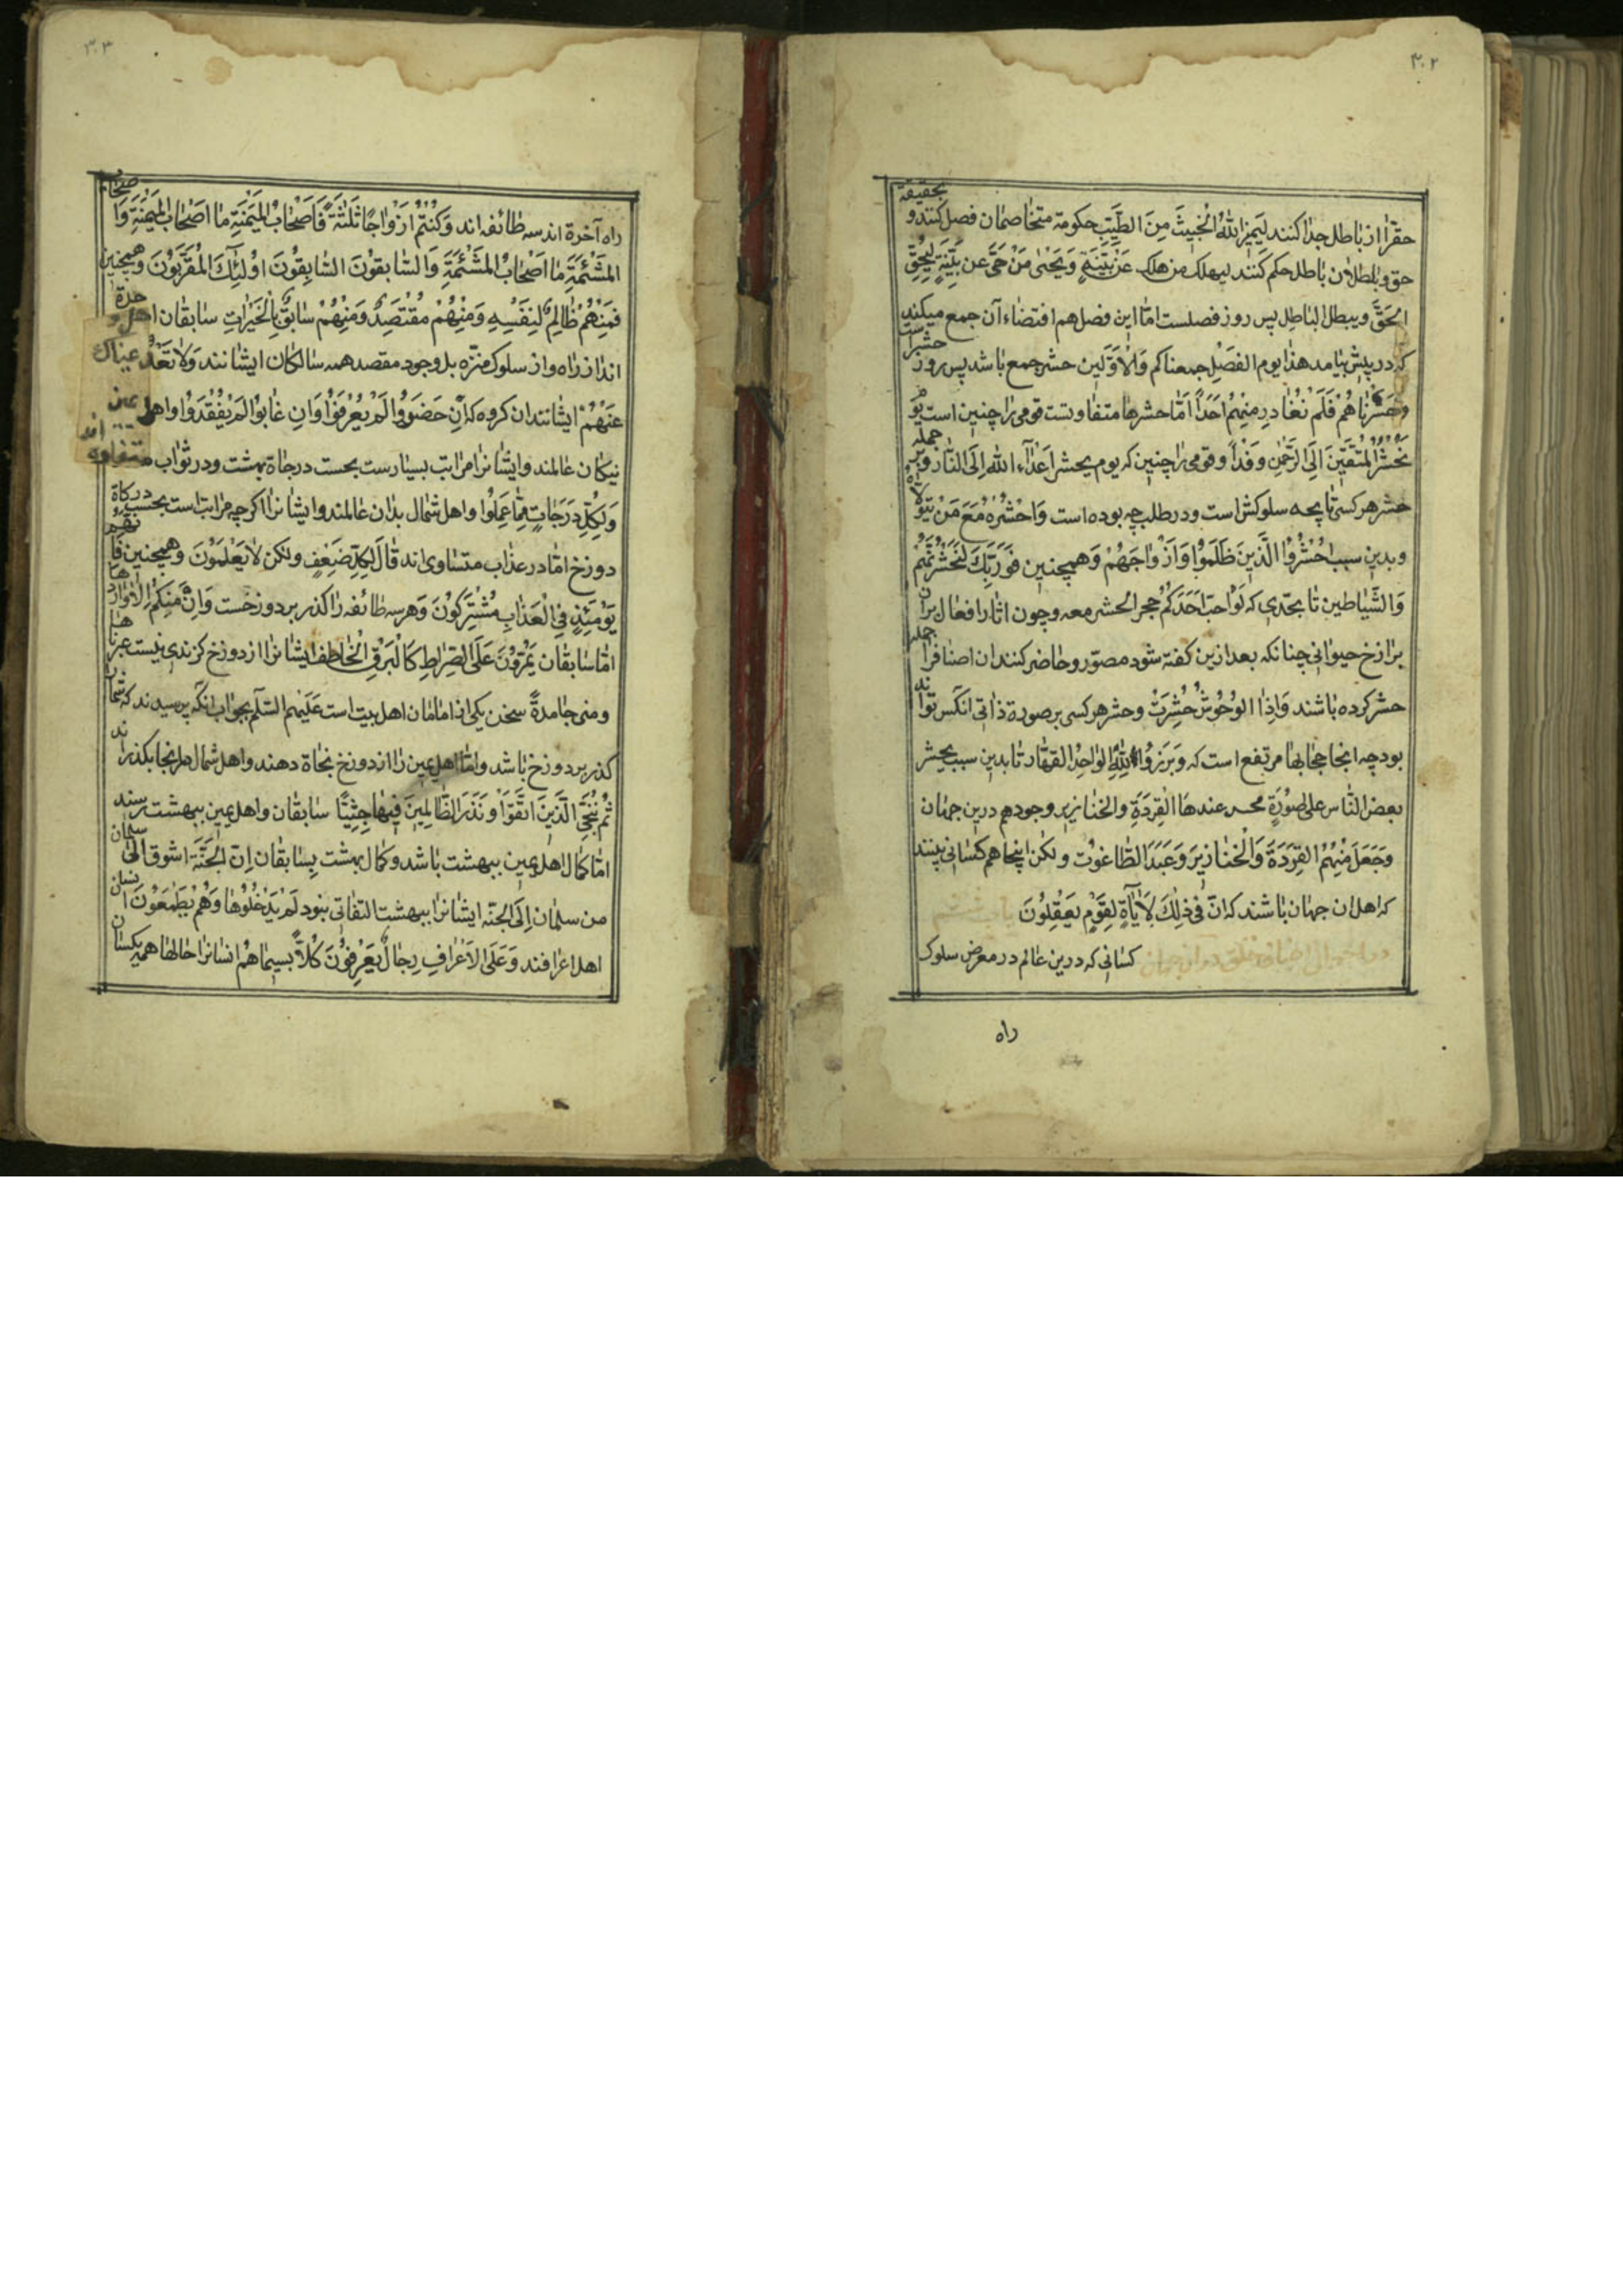 ۳۰۲
حقرا از باطل جدا کنند لیمیز اللهُ الخبیثَ مِنَ الطیّبِ حکومة متخاصمان فصل کنند و بحقیقة
حق و بطلان باطل حکم کنند لیهلک من هلک عَنْ بیّنةٍ وَیَحْیٰی مَنْ حَیَّ عن بیّنةٍ لِیُحِقَّ
الحَقَّ ویبطل الباطِل پس روز فصلست امّا این فصل هم اقتضاء آن جمع میکند
که در پیش بیامد هذا یوم الفصْلِ جمعناکم وَالْاَوّلین حشر جمع باشد پس روز حشراست
وَحَشَرْناهُمْ فَلَم نُغادِر مِنهُم اَحَداً امّا حشرها متفاوتست قومی را چنین است یَوْمَ
نَحْشُرُ المتّقینَ اِلَی الرّحْمٰنِ وَفْداً و قومی را چنین که یوم یحشر اَعْدٰآء الله اِلَی النّار و بر جمله
حشر هر کسی تا پچه سلوکش است و در طلب چه بوده است وَاحْشُرْهُ مَعَ مَنْ یَتَوَلّاهُ
و بدین سبب احْشُرُوا الّذینَ ظَلَمُوا وَاَزْواجَهُمْ وَهمچنین فَوَرَبّکَ لَنَحْشُرَنَّهُمْ
وَالشّیاطین تا بحدّی که لَوْ احبّ اَحَدَکُمْ حجر الحشر معه و چون اثار افعال بران
برازخ حیوانی چنانکه بعد ازین کفته شود مصوّر و حاضر کنند ان اصنافرا جمله
حشر کرده باشند وَاِذَا الوُحُوشُ حُشِرَتْ وحشر هر کسی بر صورة ذاتی انکس تواند
بود چه انجا حجابها مرتفع است که وبَرَزُوا للهِ الواحِدِ القهّار تا بدین سبب یحشر
بعض النّاس علی صُورَةٍ یحسن عندها القِرَدَةِ والخنازیر وجودهم درین جهان
وَجَعَلَ مِنْهُمُ القِرَدَةَ وَالْخَنازیرَ وَعَبَدَ الطّاغوُت ولکن اینجا هم کسانی بینند
که اهل ان جهان باشند که انّ فی ذٰلِکَ لَاٰیاةٍ لِقَوْمٍ یَعْقِلُونَ
در احوال اصناف خلق در ان جهان کسانی که درین عالم در معرض سلوک
راه
۳۰۳
راه آخرة اند سه طائفه اند وَکُنْتُمْ اَزْواجاً ثَلٰثَةً فَاَصْحابُ المَیْمَنَةِ ما اَصْحابُ المَیْمَنَةِ وَاَصحاب
المَشْئَمَةِ ما اَصْحابُ المَشْئَمَةِ وَالسّابقوُنَ السّابِقوُنَ اوُلٰئِکَ المُقَرّبوُنَ وهمچنین
فَمِنْهُمْ ظالِمٌ لِنَفْسِهِ وَمِنْهُمْ مُقْتَصِدٌ وَمِنْهُمْ سابِقٌ بِالْخَیْراتِ سابقان اهل وحدة
اند از راه و از سلوک منزّه بل وجود مقصد همه سالکان ایشانند وَلا تَعْدُ عیناک
عَنْهُمْ ایشانند ان کروه که اِنْ حَضَروُا لَمْ یُعْرَفوُا وَاِن غابوُا لَمْ یُفْقَدوُا و اهل یمین
نیکان عالمند و ایشانرا مراتب بسیارست بحسب درجاة بهشت و در ثواب متفاوة اند
وَلِکُلٍّ دَرَجاتٍ مِمّا عَمِلوُا و اهل شمال بدان عالمند و ایشانرا اکرچه مراتب است بحسب درکاة
دوزخ امّا در عذاب متساوی اند قالَ لِکُلٍّ ضِعْفٍ ولکن لا یَعْلَموُنَ وهمچنین فَاِنّهُمْ
یَوْمَئِذٍ فِی الْعَذابِ مُشْتَرِکوُنَ وهر سه طائفه را کذر بر دوزخست وَاِنْ مِنْکُمْ اِلّا وارِدُها
امّا سابقان یَمُرّوُنَ عَلَی الصّراطِ کَالْبَرْقِ الْخاطِف ایشانرا از دوزخ کزندی نیست عبرناها
وهی جامدةٌ سخن یکی از امامان اهل بیت است عَلَیْهِم السّلٰم بجواب انکه پرسیدند که شمارا
کذر بر دوزخ باشد وامّا اهل یمین را از دوزخ نجاة دهند و اهل شمال در انجا بکذرانند
ثُمّ نُنَجّی الّذینَ اتّقَوْا وَنَذَرُ الظّالِمینَ فیها جِثِیّاً سابقان و اهل یمین ببهشت رسند
امّا کمال اهل یمین ببهشت باشد و کمال بهشت بسابقان اِنّ الجَنّةَ اشوق اِلیٰ سلمان
من سلمان اِلَی الجنّة ایشانرا ببهشت التفاتی نبود لَمْ یَدْخُلوُها وَهُمْ یَطْمَعوُنَ ایشان
اهل اعرافند وَعَلَی الاَعْرافِ رِجالٌ یَعْرِفوُنَ کُلاًّ بِسیماهُمْ انسانرا حالها همه یکسان